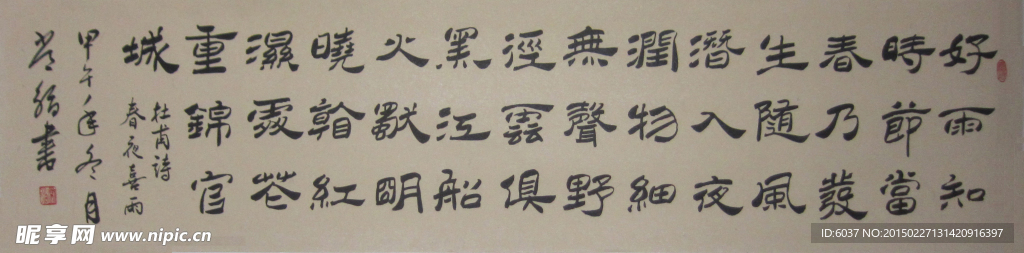 好雨知
時節當
春乃發
生隨風
潛入夜
潤物細
無聲野
徑雲俱
黑江船
火獨明
曉看紅
濕處花
重錦官
城
杜甫詩
春夜喜雨
甲午年冬月
書
昵享网 www.nipic.cn
ID:6037 NO:20150227131420916397